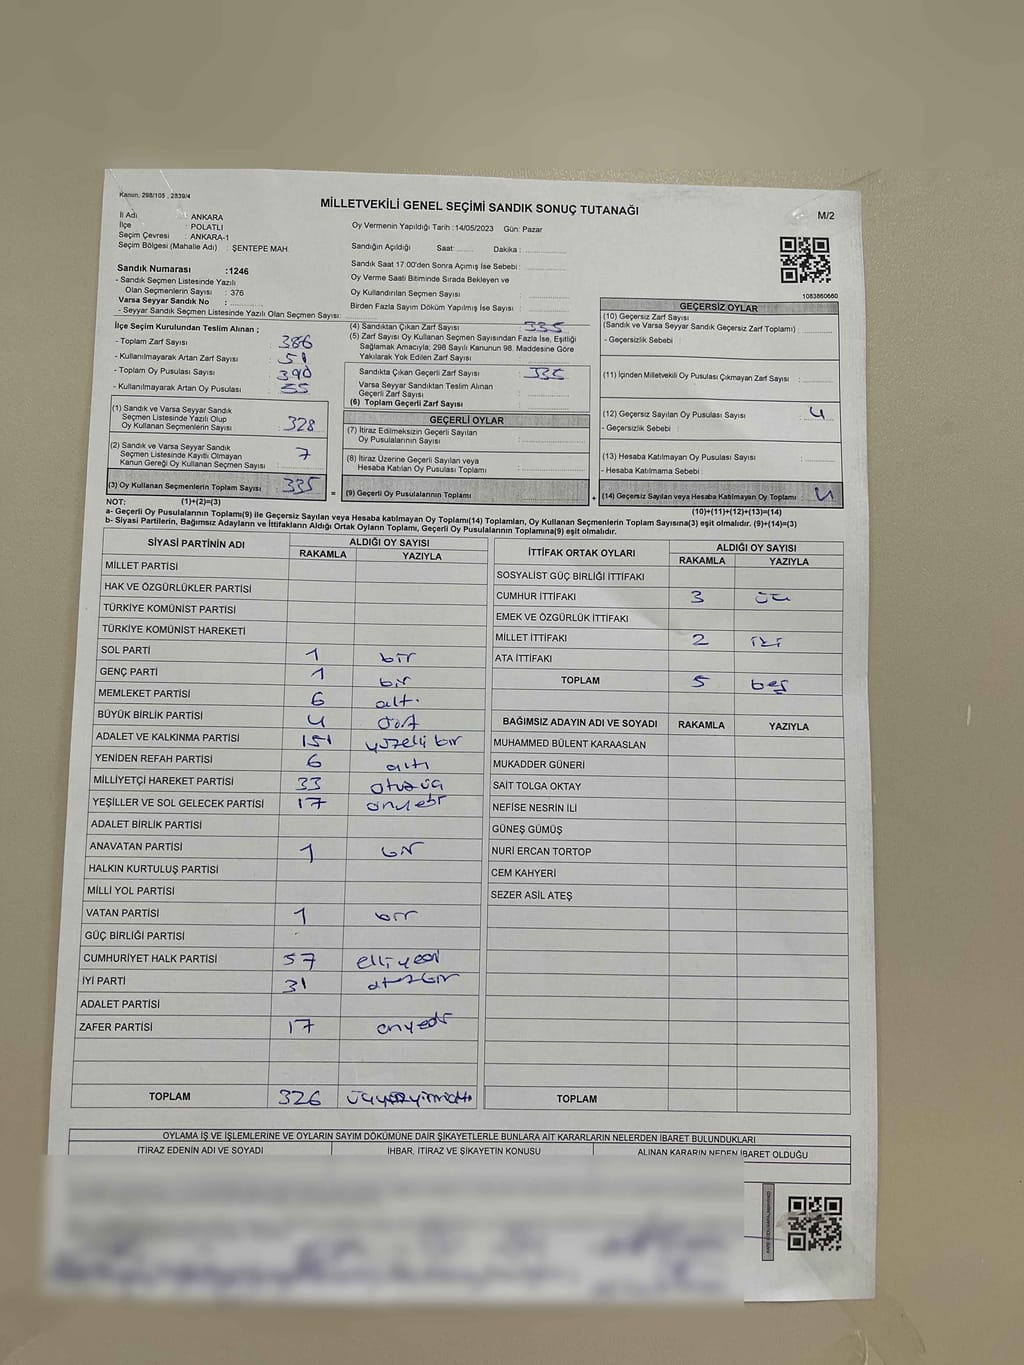 Kanun: 298/105 , 2839/4
MİLLETVEKİLİ GENEL SEÇİMİ SANDIK SONUÇ TUTANAĞI
M/2
İl Adı : ANKARA
İlçe : POLATLI
Seçim Çevresi : ANKARA-1
Seçim Bölgesi (Mahalle Adı) : ŞENTEPE MAH
Oy Vermenin Yapıldığı Tarih : 14/05/2023 Gün: Pazar
Sandığın Açıldığı Saat: Dakika :
Sandık Saat 17:00'den Sonra Açımış İse Sebebi :
Oy Verme Saati Bitiminde Sırada Bekleyen ve
Oy Kullandırılan Seçmen Sayısı :
Birden Fazla Sayım Döküm Yapılmış İse Sayısı :
1083860660
Sandık Numarası :1246
- Sandık Seçmen Listesinde Yazılı
Olan Seçmenlerin Sayısı : 376
Varsa Seyyar Sandık No :
- Seyyar Sandık Seçmen Listesinde Yazılı Olan Seçmen Sayısı:
İlçe Seçim Kurulundan Teslim Alınan ;
- Toplam Zarf Sayısı : 386
- Kullanılmayarak Artan Zarf Sayısı : 51
- Toplam Oy Pusulası Sayısı : 390
- Kullanılmayarak Artan Oy Pusulası : 55
(1) Sandık ve Varsa Seyyar Sandık
Seçmen Listesinde Yazılı Olup
Oy Kullanan Seçmenlerin Sayısı : 328
(2) Sandık ve Varsa Seyyar Sandık
Seçmen Listesinde Kayıtlı Olmayan
Kanun Gereği Oy Kullanan Seçmen Sayısı : 7
(3) Oy Kullanan Seçmenlerin Toplam Sayısı : 335
(4) Sandıktan Çıkan Zarf Sayısı : 335
(5) Zarf Sayısı Oy Kullanan Seçmen Sayısından Fazla İse, Eşitliği
Sağlamak Amacıyla; 298 Sayılı Kanunun 98. Maddesine Göre
Yakılarak Yok Edilen Zarf Sayısı :
Sandıkta Çıkan Geçerli Zarf Sayısı : 335
Varsa Seyyar Sandıktan Teslim Alınan
Geçerli Zarf Sayısı :
(6) Toplam Geçerli Zarf Sayısı :
GEÇERLİ OYLAR
(7) İtiraz Edilmeksizin Geçerli Sayılan
Oy Pusulalarının Sayısı :
(8) İtiraz Üzerine Geçerli Sayılan veya
Hesaba Katılan Oy Pusulası Toplamı :
= (9) Geçerli Oy Pusulalarının Toplamı :
GEÇERSİZ OYLAR
(10) Geçersiz Zarf Sayısı
(Sandık ve Varsa Seyyar Sandık Geçersiz Zarf Toplamı) :
- Geçersizlik Sebebi :
(11) İçinden Milletvekili Oy Pusulası Çıkmayan Zarf Sayısı :
(12) Geçersiz Sayılan Oy Pusulası Sayısı : 4
- Geçersizlik Sebebi :
(13) Hesaba Katılmayan Oy Pusulası Sayısı :
- Hesaba Katılmama Sebebi :
+ (14) Geçersiz Sayılan veya Hesaba Katılmayan Oy Toplamı : 4
NOT: (1)+(2)=(3)
(10)+(11)+(12)+(13)=(14)
a- Geçerli Oy Pusulalarının Toplamı(9) ile Geçersiz Sayılan veya Hesaba katılmayan Oy Toplamı(14) Toplamları, Oy Kullanan Seçmenlerin Toplam Sayısına(3) eşit olmalıdır. (9)+(14)=(3)
b- Siyasi Partilerin, Bağımsız Adayların ve İttifakların Aldığı Ortak Oyların Toplamı, Geçerli Oy Pusulalarının Toplamına(9) eşit olmalıdır.
SİYASİ PARTİNİN ADI ALDIĞI OY SAYISI
RAKAMLA YAZIYLA
MİLLET PARTİSİ
HAK VE ÖZGÜRLÜKLER PARTİSİ
TÜRKİYE KOMÜNİST PARTİSİ
TÜRKİYE KOMÜNİST HAREKETİ
SOL PARTİ 1 bir
GENÇ PARTİ 1 bir
MEMLEKET PARTİSİ 6 altı
BÜYÜK BİRLİK PARTİSİ 4 dört
ADALET VE KALKINMA PARTİSİ 151 yüzelli bir
YENİDEN REFAH PARTİSİ 6 altı
MİLLİYETÇİ HAREKET PARTİSİ 33 otuzüç
YEŞİLLER VE SOL GELECEK PARTİSİ 17 onyedi
ADALET BİRLİK PARTİSİ
ANAVATAN PARTİSİ 1 bir
HALKIN KURTULUŞ PARTİSİ
MİLLİ YOL PARTİSİ
VATAN PARTİSİ 1 bir
GÜÇ BİRLİĞİ PARTİSİ
CUMHURİYET HALK PARTİSİ 57 elliyedi
İYİ PARTİ 31 otuzbir
ADALET PARTİSİ
ZAFER PARTİSİ 17 onyedi
TOPLAM 326 üçyüzyirmialtı
İTTİFAK ORTAK OYLARI ALDIĞI OY SAYISI
RAKAMLA YAZIYLA
SOSYALİST GÜÇ BİRLİĞİ İTTİFAKI
CUMHUR İTTİFAKI 3 üç
EMEK VE ÖZGÜRLÜK İTTİFAKI
MİLLET İTTİFAKI 2 iki
ATA İTTİFAKI
TOPLAM 5 beş
BAĞIMSIZ ADAYIN ADI VE SOYADI RAKAMLA YAZIYLA
MUHAMMED BÜLENT KARAASLAN
MUKADDER GÜNERİ
SAİT TOLGA OKTAY
NEFİSE NESRİN İLİ
GÜNEŞ GÜMÜŞ
NURİ ERCAN TORTOP
CEM KAHYERİ
SEZER ASİL ATEŞ
TOPLAM
OYLAMA İŞ VE İŞLEMLERİNE VE OYLARIN SAYIM DÖKÜMÜNE DAİR ŞİKAYETLERLE BUNLARA AİT KARARLARIN NELERDEN İBARET BULUNDUKLARI
İTİRAZ EDENİN ADI VE SOYADI İHBAR, İTİRAZ VE ŞİKAYETİN KONUSU ALINAN KARARIN NEDEN İBARET OLDUĞU